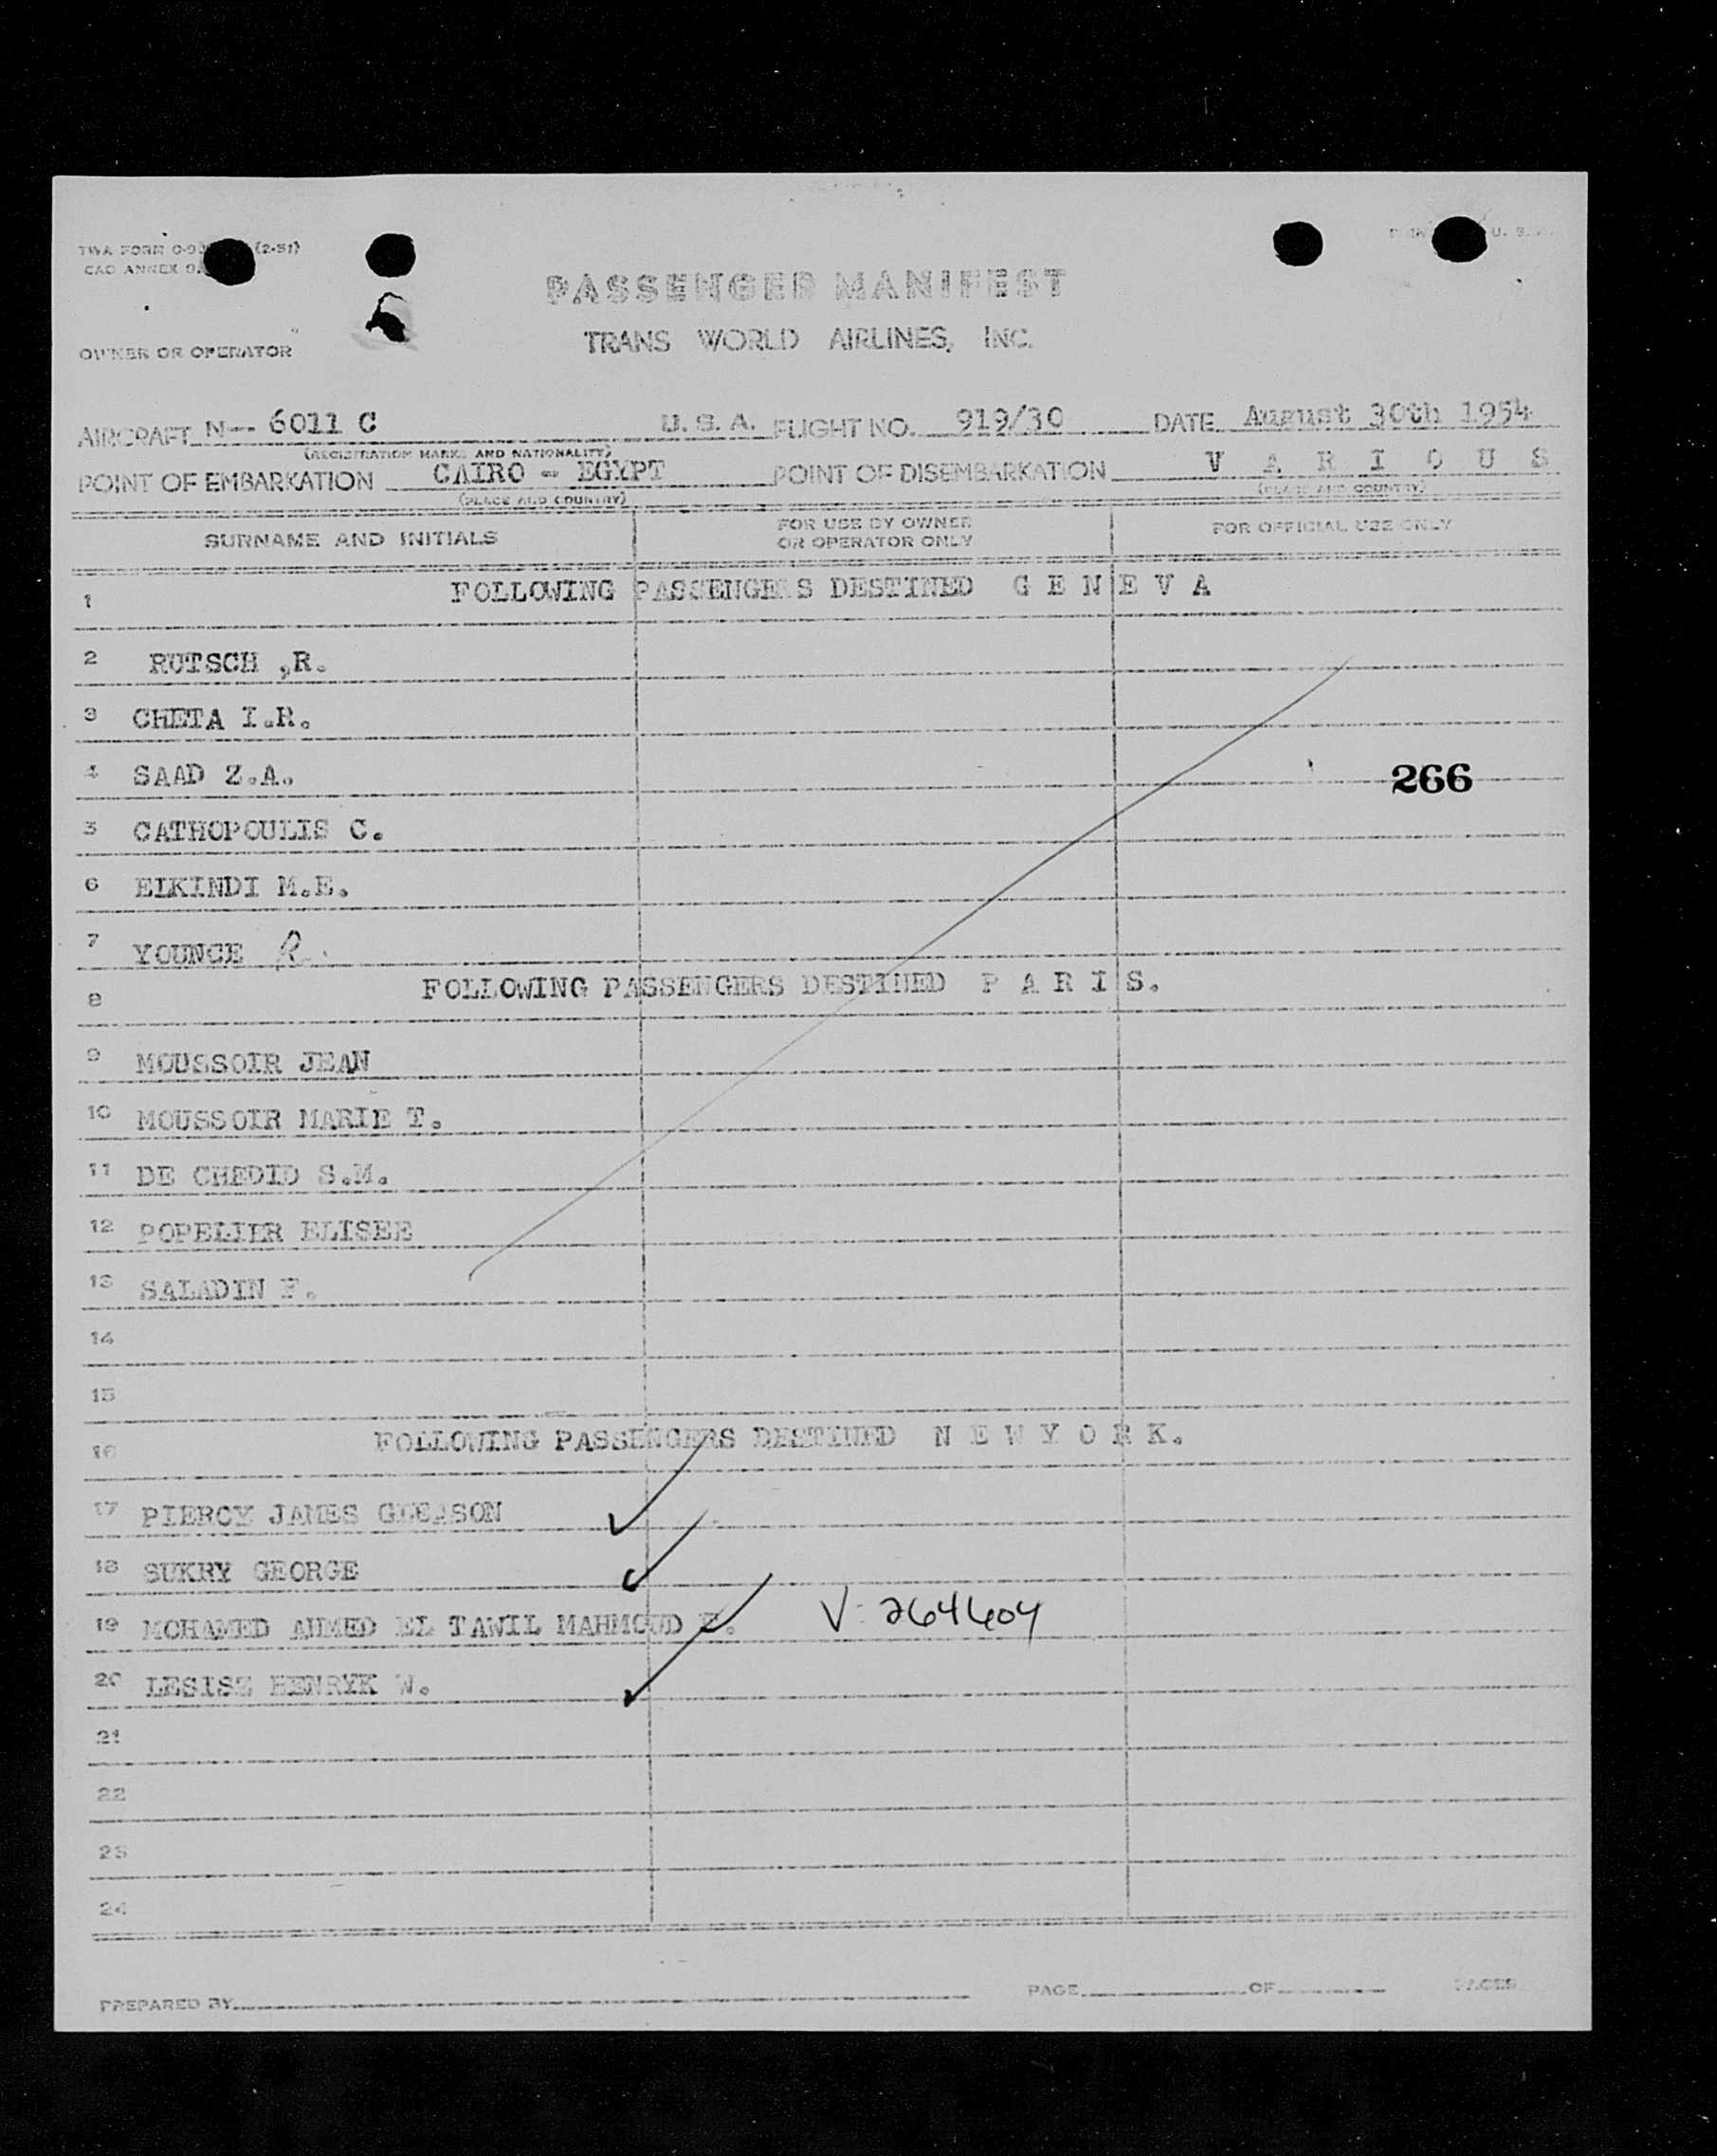 TWA FORM (2-51)
CAO ANNEX 9
U. S. A.
PASSENGER MANIFEST
OWNER OR OPERATOR
TRANS WORLD AIRLINES, INC.
AIRCRAFT N-- 6011 C U. S. A. FLIGHT NO. 919/30 DATE August 30th 1954
(REGISTRATION MARKS AND NATIONALITY)
POINT OF EMBARKATION CAIRO - EGYPT POINT OF DISEMBARKATION V A R I O U S
(PLACE AND COUNTRY) (PLACE AND COUNTRY)
SURNAME AND INITIALS FOR USE BY OWNER OR OPERATOR ONLY FOR OFFICIAL USE ONLY
1 FOLLOWING PASSENGERS DESTINED G E N E V A
2 RUTSCH ,R.
3 CHETA I.R.
4 SAAD Z.A. 266
5 CATHOPOULIS C.
6 EIKINDI M.E.
7 YOUNCE R.
8 FOLLOWING PASSENGERS DESTINED P A R I S.
9 MOUSSOIR JEAN
10 MOUSSOIR MARIE T.
11 DE CHEDID S.M.
12 POPELIER ELISEE
13 SALADIN F.
14
15
16 FOLLOWING PASSENGERS DESTINED N E W Y O R K.
17 PIERCY JAMES GLEASON
18 SUKRY GEORGE
19 MOHAMED AHMED EL TAWIL MAHMOUD V-264604
20 LESISZ HENRYK W.
21
22
23
24
PREPARED BY PAGE OF PAGES